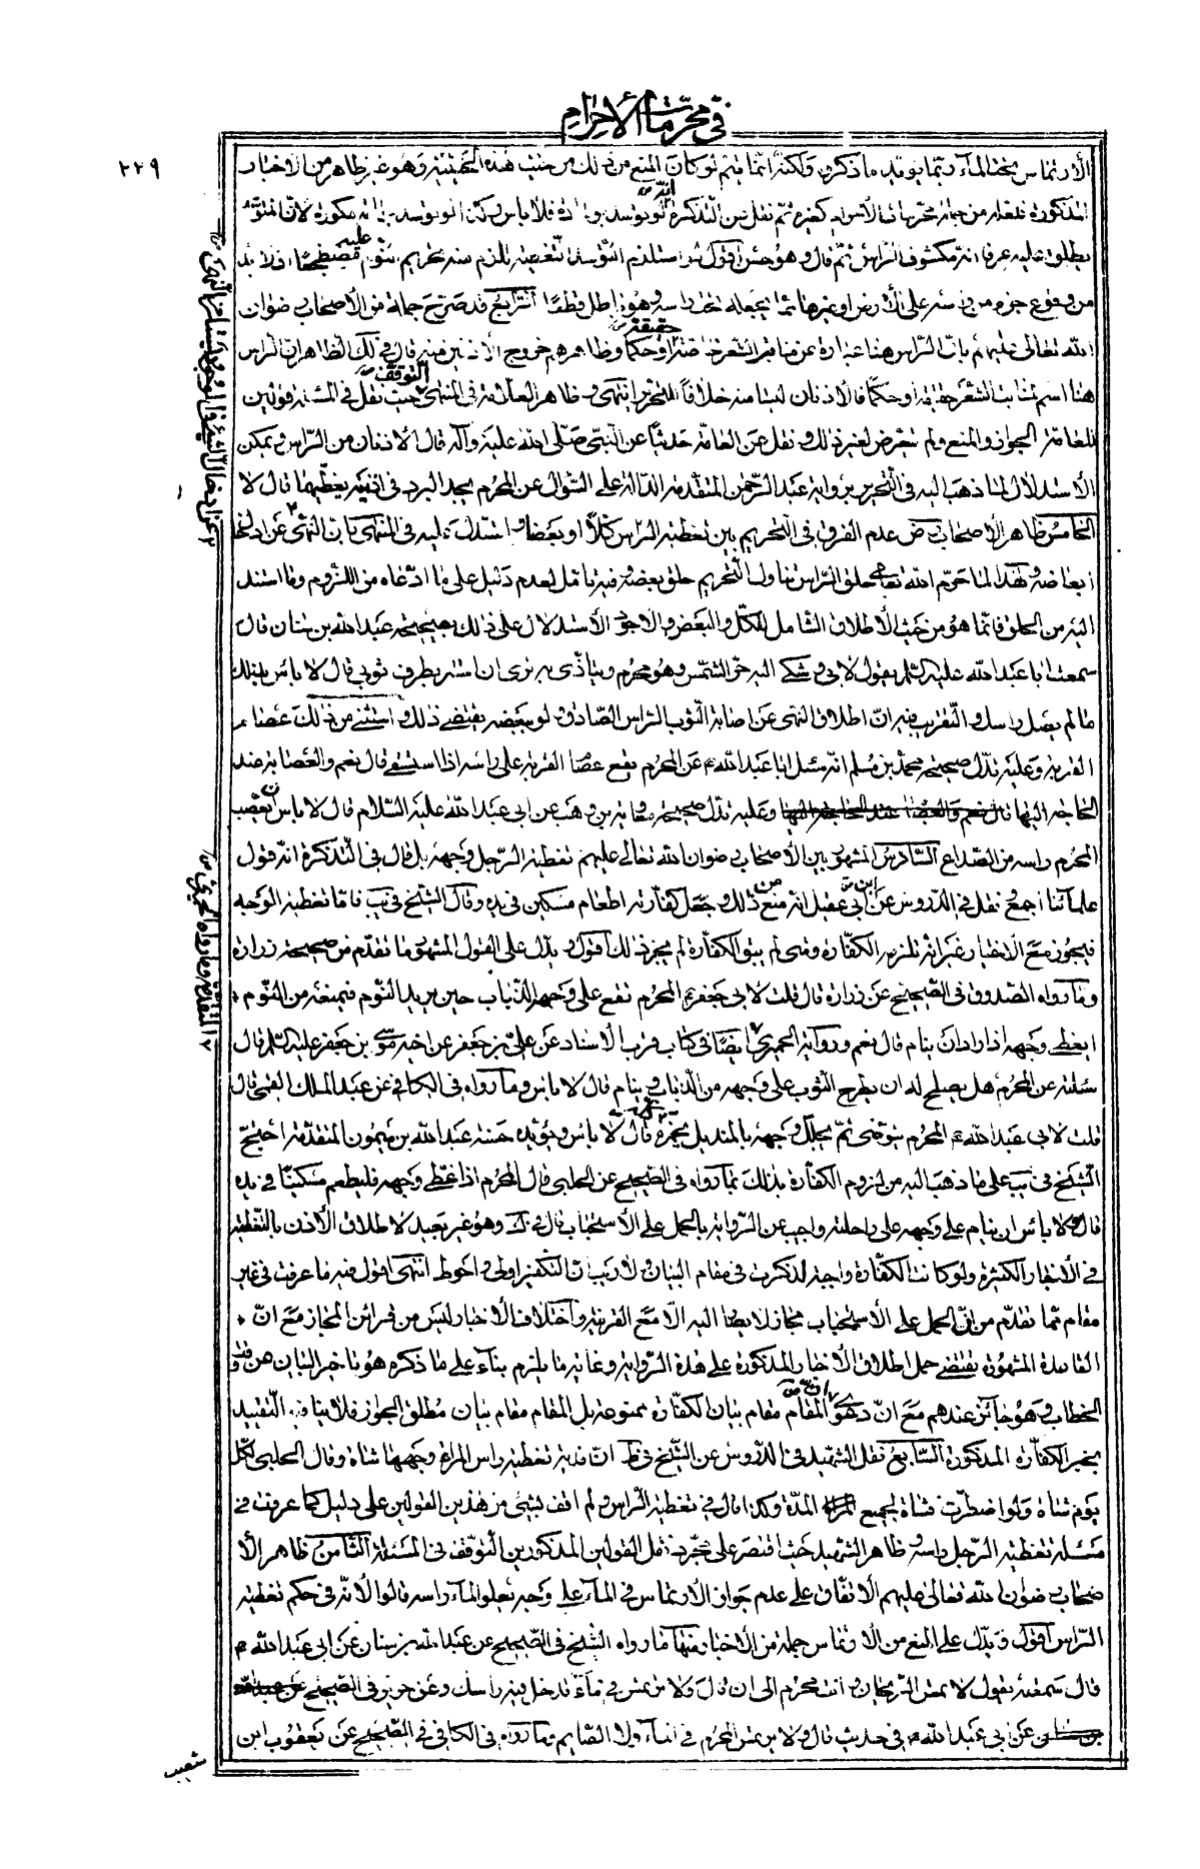 في محرمات الأحرام
٢٢٩
الارتماس تحت الماء وربما يؤيد ما ذكره ولكنه انما يتم لو كان المنع من ذلك من حيث هذه الحيثية وهو غير ظاهر من الاخبار
المذكورة فلعله من جملة محرمات الاحرام كغيره ثم نقل عن التذكرة انه لو توسد بوسادة فلا باس وكذا لو توسد بعمامة مكورة لان المتوسد
يطلق عليه عرفا انه مكشوف الراس ثم قال وهو حسن اقول لو استلزم التوسد التغطية للزم منه تحريم نومه مضطجعا اذ لا بد
من وضع جزء من راسه على الارض او غيرها مما يجعله تحت راسه وهو باطل قطعا الرابع قد صرح جملة من الاصحاب رضوان
الله تعالى عليهم بان الراس هنا عبارة عن منابت الشعر حقيقة او حكما وظاهرهم خروج الاذنين منه قال في لك الظاهر ان الراس
هنا اسم لمنابت الشعر حقيقة او حكما فالاذنان ليستا منه خلافا للتحرير انتهى وظاهر العلامة في المنتهى التوقف حيث نقل في المسئلة قولين
للعامة الجواز والمنع ولم يتعرض لغير ذلك ونقل عن العامة حديثا عن النبي صلى الله عليه وآله قال الاذنان من الراس ويمكن
الاستدلال لما ذهب اليه في التحرير برواية عبد الرحمن المتقدمة الدالة على السؤال عن المحرم يجد البرد في اذنيه يغطيهما قال لا
الخامس ظاهر الاصحاب رض عدم الفرق في التحريم بين تغطية الراس كلا او بعضا واستدل عليه في المنتهى بان النهى عن ادخال
ابعاضه ولهذا لما حرم الله تعالى حلق الراس تناول التحريم حلق بعضه وفيه تامل لعدم دليل على ما ادعاه من اللزوم وما استند
اليه من الحلق فانما هو من حيث الاطلاق الشامل للكل والبعض والاجود الاستدلال على ذلك بصحيحة عبد الله بن سنان قال
سمعت ابا عبد الله عليه السلم يقول لابي وشكى اليه حر الشمس وهو محرم ويتاذى به ترى ان استتر بطرف ثوبي قال لا باس بذلك
ما لم يصل راسك والتقريب فيه ان اطلاق النهى عن اصابة الثوب الراس الصادق ولو ببعضه يقتضى ذلك واستثنى من ذلك عصام
القربة وعليه تدل صحيحة محمد بن مسلم انه سئل ابا عبد الله ع عن المحرم يضع عصام القربة على راسه اذا استسقى قال نعم والعصابة عند
الحاجة اليها وعليه تدل صحيحة معاوية بن وهب عن ابي عبد الله عليه السلام قال لا باس ان يعصب
المحرم راسه من الصداع السادس المشهور بين الاصحاب رضوان الله تعالى عليهم تغطية الرجل وجهه بل قال في التذكرة انه قول
علمائنا اجمع ونقل في الدروس عن ابن ابي عقيل انه منع من ذلك وجعل كفارته اطعام مسكين في يده وقال الشيخ في يب فاما تغطية الوجه
فيجوز مع الاختيار غير انه تلزمه الكفارة ومتى لم ينو الكفارة لم يجز ذلك اقول ويدل على القول المشهور ما تقدم من صحيحة زرارة
وما رواه الصدوق في الصحيح عن زرارة قال قلت لابي جعفر ع المحرم تقع على وجهه الذباب حين يريد النوم فيمنعه من النوم
ايغطى وجهه اذا اراد ان ينام قال نعم ورواية الحميري ايضا في كتاب قرب الاسناد عن علي بن جعفر عن اخيه موسى بن جعفر عليه السلم قال
سئلته عن المحرم هل يصلح له ان يطرح الثوب على وجهه من الذباب وينام قال لا باس وما رواه في الكافي عن عبد الملك القمي قال
قلت لابي عبد الله ع المحرم يتوضى ثم يجلل وجهه بالمنديل يخمره كله قال لا باس ويؤيده حسنة عبد الله بن ميمون المتقدمة احتج
الشيخ في يب على ما ذهب اليه من لزوم الكفارة بذلك بما رواه في الصحيح عن الحلبي قال المحرم اذا غطى وجهه فليطعم مسكينا في يده
قال ولا باس ان ينام على وجهه على راحلته واجيب عن الرواية بالحمل على الاستحباب قال في لك وهو غير بعيد لاطلاق الاذن بالتغطية
في الاخبار الكثيرة ولو كانت الكفارة واجبة لذكرت في مقام البيان ولا ريب ان التكفير اولى واحوط انتهى اقول فيه ما عرفت في غير
مقام مما تقدم من ان الحمل على الاستحباب مجاز لا يصار اليه الا مع القرينة واختلاف الاخبار ليس من قرائن المجاز مع ان
القاعدة المشهورة يقتضى حمل اطلاق الاخبار المذكورة على هذه الرواية وغاية ما يلزم بناء على ما ذكره هو تاخير البيان عن وقت
الخطاب وهو جائز عندهم مع ان دعوى ان المقام مقام بيان الكفارة ممنوعة بل المقام مقام بيان مطلق الجواز فلا ينافيه التقييد
بخبر الكفارة المذكورة السابع نقل الشهيد في الدروس عن الشيخ في ط ان فدية تغطية راس المراة وجهها شاة وقال الحلبي لكل
يوم شاة ولو اضطرت فشاة لجميع المدة وكذا قال في تغطية الراس ولم اقف لشيئ من هذين القولين على دليل كما عرفت في
مسئلة تغطية الرجل راسه وظاهر الشهيد حيث اقتصر على مجرد نقل القولين المذكورين التوقف في المسئلة الثامن ظاهر الا
صحاب رضوان الله تعالى عليهم الاتفاق على عدم جواز الارتماس في الماء على وجه يعلو الماء راسه قالوا لانه في حكم تغطية
الراس اقول ويدل على المنع من الارتماس جملة من الاخبار منها ما رواه الشيخ في الصحيح عن عبد الله بن سنان عن ابي عبد الله ع
قال سمعته يقول لا تمس الريحان وانت محرم الى ان قال ولا ترتمس في ماء تدخل فيه راسك وعن حريز في الصحيح
عن ابي عبد الله ع في حديث قال ولا يرتمس المحرم في الماء ولا الصايم وما رواه في الكافي في الصحيح عن يعقوب ابن
شعيب